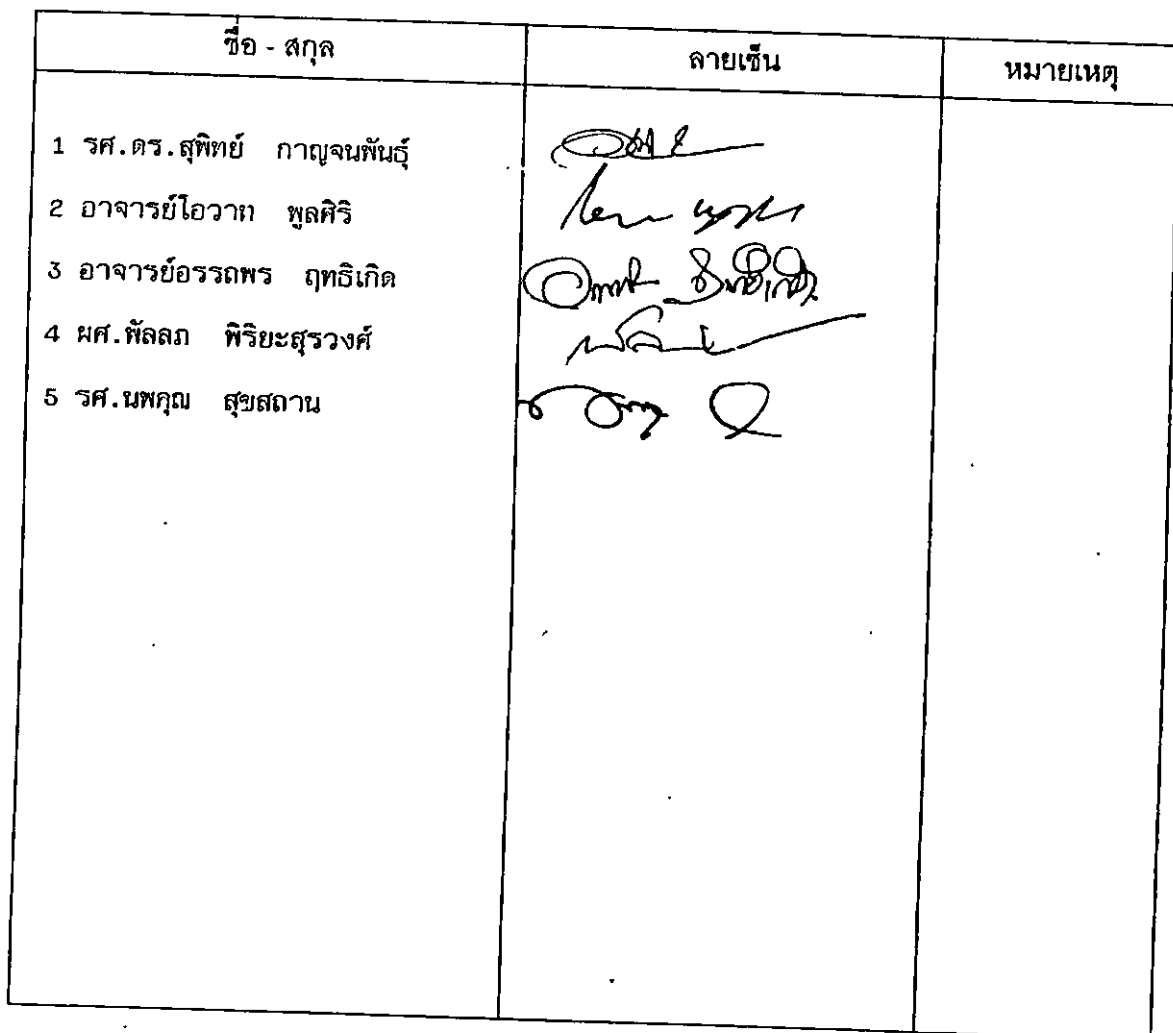 ชื่อ - สกุล ลายเซ็น หมายเหตุ
1 รศ.ดร.สุพิทย์ กาญจนพันธุ์
2 อาจารย์โอวาท พูลศิริ
3 อาจารย์อรรถพร ฤทธิเกิด
4 ผศ.พัลลภ พิริยะสุรวงศ์
5 รศ.นพคุณ สุขสถาน